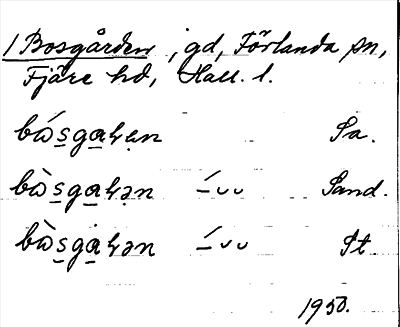 1 Bosgården, gd, Förlanda sn,
Fjäre hd, Hall. l.
bósgaꞕen Sa.
bòsgaꞕən –́ ᴗ ᴗ Sand.
bòsgaꞕən –́ ᴗ ᴗ St.
1950.